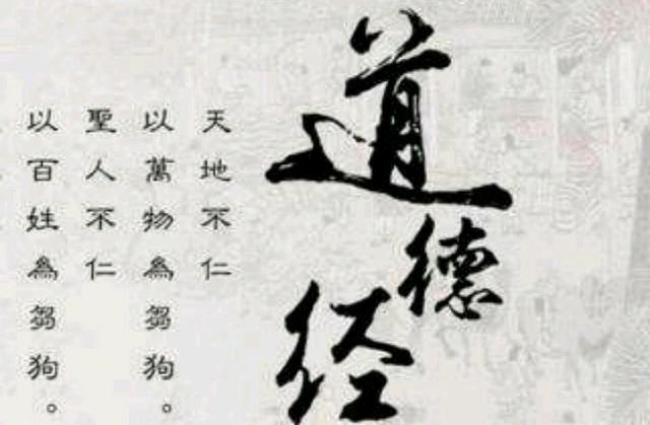 道德经
天地不仁
以萬物為芻狗。
聖人不仁
以百姓為芻狗。